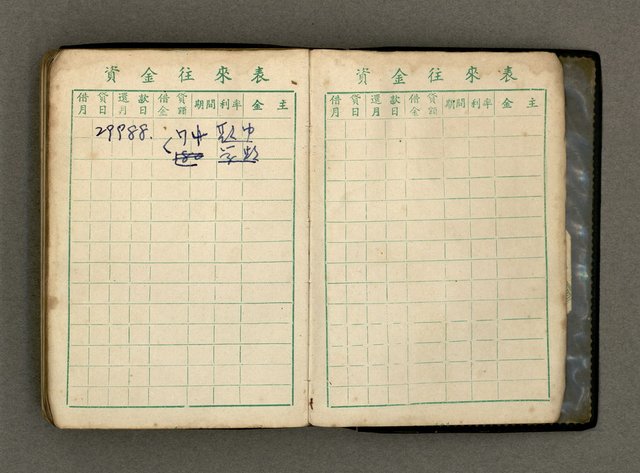 資金往來表
借貸月日 還款月日 借貸金額 期間 利率 金主
29988.
資金往來表
借貸月日 還款月日 借貸金額 期間 利率 金主